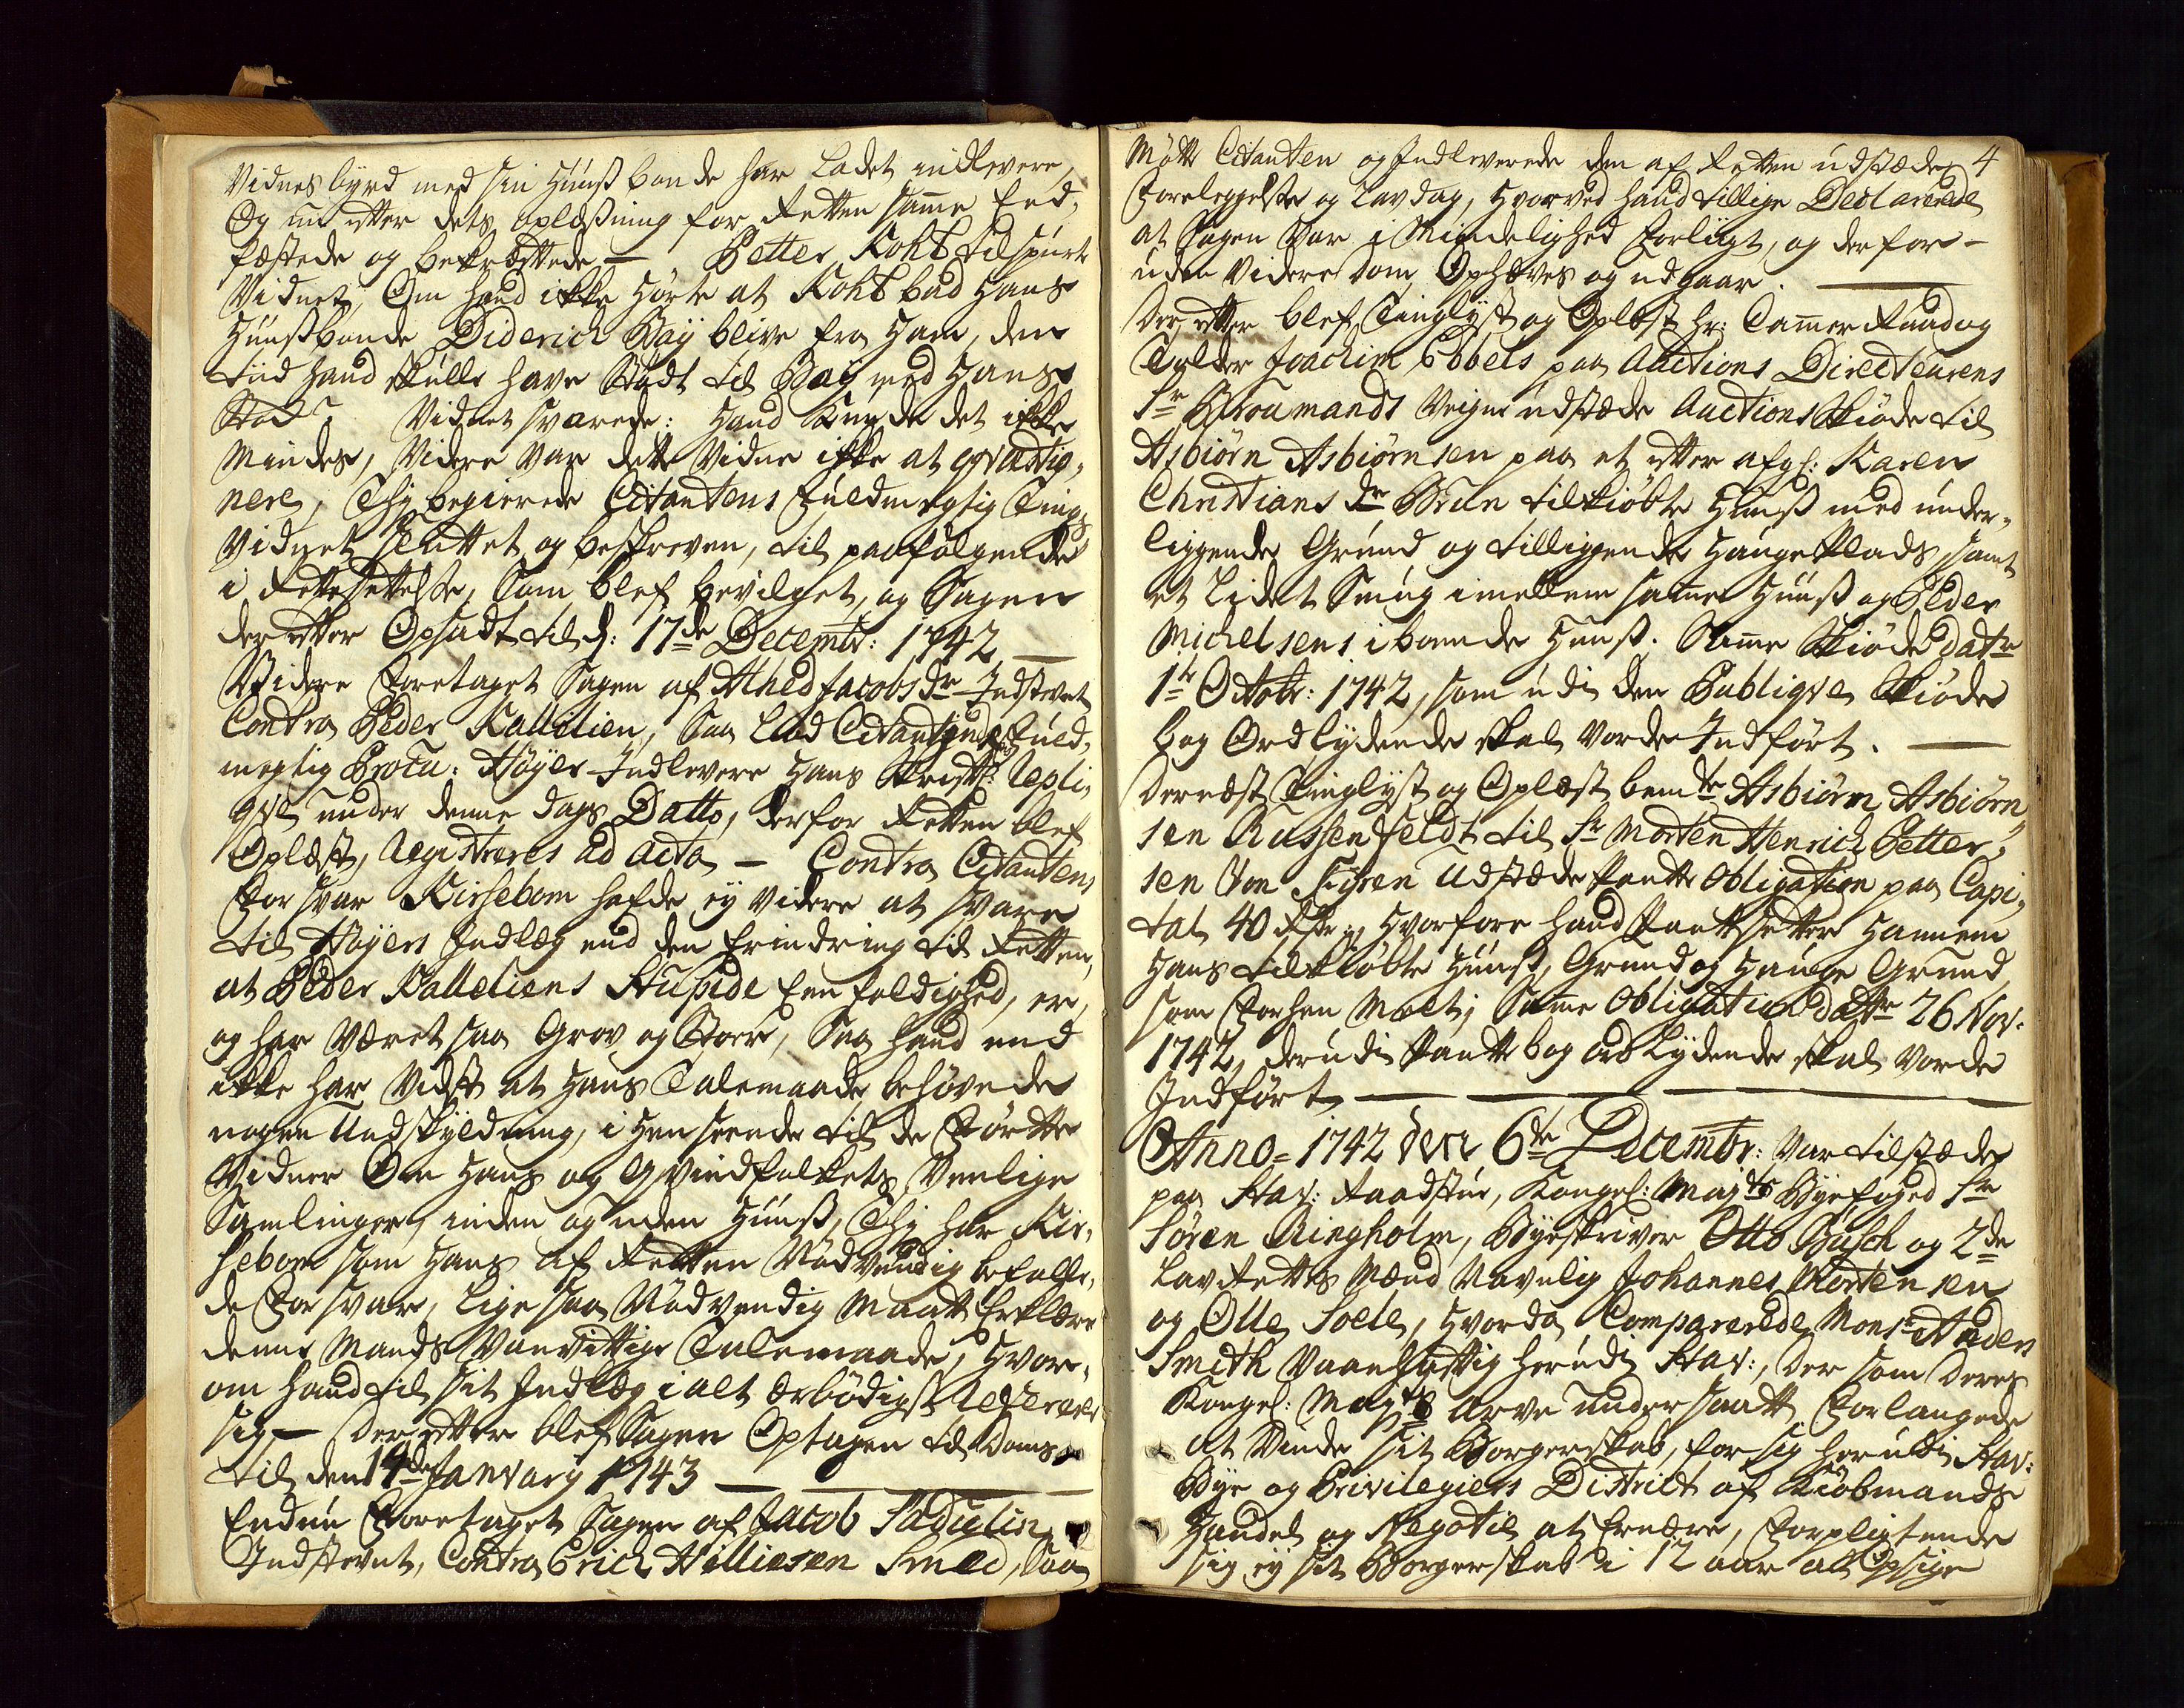 Vidnes byrd med sin Huusbonde har Ladet indlevere,
Og nu efter dets oplæsning for Retten samme Eed,
fæstede og bekræftede — Petter Kohb tilspurte
Vidnet, Om hand ikke Hørte at Kohb bad Hans
Huusbonde Diderich Baÿ blive fra Ham, den
tiid hand skulle have Stødt til Baÿ med Hans
Stok? Vidnet svarede: Hand Kunde det ikke
Mindes, Videre var dette Vidne ikke at qvæstio,
nere, Thi begierede Citantens Fuldmegtig Tings
Vidnet sluttet og beskreven, til paafølgende
i Rettesettelse, Som blef bevilget, og Sagen
der efter Opsadt til d: 17de Decembr: 1742 —
Videre Foretaget Sagen af Alhed Jacobs dr Indstevnt
Contra Peder Kallelien, Saa Lod Citantindens Fuld,
megtig Procu: Høyer Indlevere Hans Skriftl: Repli,
qve under denne Dags Datto, der for Retten blef
Oplæst, Registreres ad Acta — Contra Citantens
Forsvar Kirsebom hafde ey videre at svare
til Høyers Indlæg end den Erindring til Retten,
at Peder Kalleliens Stupide Eenfoldighed, er,
og har Været saa Grov og Stor, Saa hand end
ikke har Vidst at Hans Talemaade behøvede
nogen Undskyldning, i Henseende til de Førte
Vidner Om Hans og Qvindfolkets Venlige
Samlinger, inden og uden Huus, Thi har Kir,
sebom som Hans af Retten Nødvendig befalte,
de Forsvar, Lige saa Nødvendig Maatt Erklære
denne Mands Vanvittige Talemaade, Hvor,
om hand til sit Indlæg i alt ærbødigst Refererer
sig, — Der efter blef Sagen Optagen til Doms
til den 14de January 1743 —
Endnu Foretaget Sagen af Jacob
Indstevnt, Contra Erich Hilliesen Smed, Saa
Møtte Citanten og Indleverede den af Retten udstæde 4
Foreleggelse og Lavdag, Hvorved hand tillige Declarerede
at Sagen var i Mindelighed Forligt, og derfor —
uden Videre dom, Ophæves og udgaar. —
Der efter blef Tinglyst og Oplæst Hr: Cammer Raad og
Tolder Joachim Ebbels paa Auctions Directeurens
Sr Wroumands Veigne udstæde Auctions Skiøde til
Asbiørn Asbiørnsen paa et efter afg: Karen
Christians dr Brun tilkiøbte Huus med under,
liggende Grund og tilliggende Hauge Plads, samt
et Lidet Smug imellem samme Huus og Peder
Michelsens iboende Huus. Samme Skiøde datr
1te Octobr: 1742, som udi den Publiqve Skiøde
bog Ordlydende skal vorde Indført. —
Dernæst Tinglyst og Oplæst bemte Asbiørn Asbiørn,
sen Russenfeldt til Sr Morten Henrich Petter,
sen Von Fyren Udstæde Pante Obligation paa Capi,
tal 40 Rdr, Hvorfore hand Pantsetter Hannem
Hans tilkiøbte Huus, Grund og Hauge Grund,
som Forhen Melt; Samme Obligation datr 26 Nov:
1742, der udi Pante bog ordlydende skal Vorde
Indført —
Anno 1742 den 6te Decembr: Var tilstæde
paa Stav: Raadstue, Kongel: Majts Byefoged Sr
Søren Ringholm, Byeskriver Otto Busch og 2de
Lavrettes Mænd Navnlig Johannes Mortensen
og Olle Soele, Hvorda Comparerede Monsr Anders
Smith Vaanhaftig herudi Stav:, der som deres
Kongel: Majts Arve undersaatt Forlangede
at Vinde sit Borgerskab, for sig herudi Stav:
Bye og Privilegiers District af Kiøbmands
Handel og Negotie at Ernære, Forpligtende
sig ey sit Borgerskab i 12 aar at Opsige